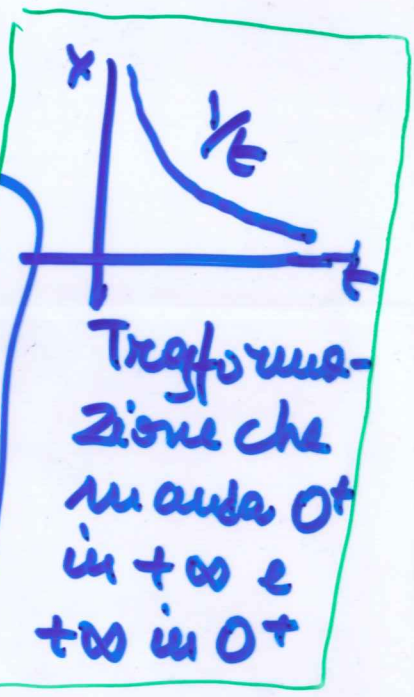 x
1/t
t
Trasforma-
zione che
manda 0⁺
in +∞ e
+∞ in 0⁺